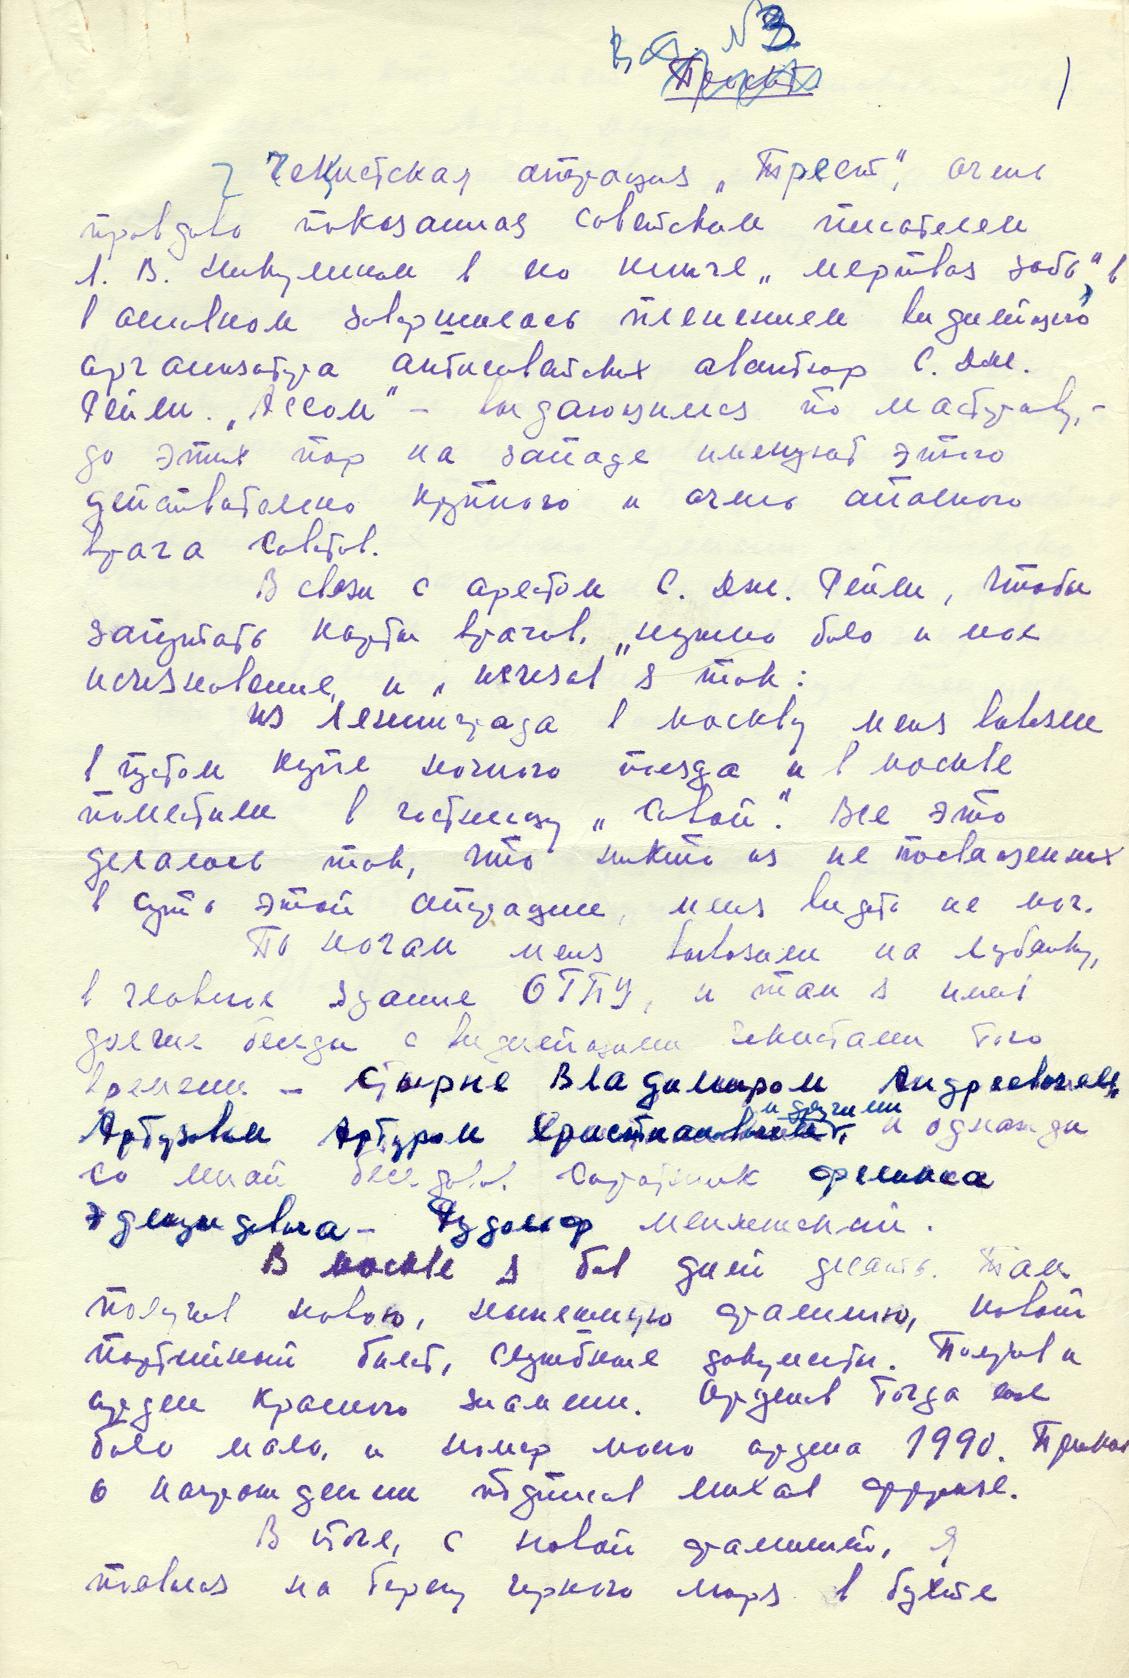 Вар. №3
1
Чекистская операция „Трест“, очень
правдиво показанная советским писателем
Л. В. Никулиным в его книге „Мертвая зыбь“, в
в основном завершилась пленением виднейшего
организатора антисоветских авантюр С. Дж.
Рейли. „Ассом“ – выдающимся по мастерству, –
до этих пор на западе именуют этого
действительно крупного и очень опасного
врага советов.
В связи с арестом С. Дж. Рейли, чтобы
запутать карты врагов, „нужно было и мое
исчезновение, и „исчезал я так:
из Ленинграда в Москву меня вывезли
в пустом купе ночного поезда и в Москве
поместили в гостиницу „Савой“. Все это
делалось так, что никто из не посвященных
в суть этой операции, меня видеть не мог.
По ночам меня вывозили на Лубянку,
в главное здание ОГПУ, и там я имел
долгие беседы с виднейшими чекистами того
времени – Стырне Владимиром Андреевичем,
Артузовым Артуром Христиановичем и другими, и однажды
со мной беседовал соратник Феликса
Эдмундовича – Рудольф Менжинский.
В Москве я был дней десять. Там
получил новую, нынешнюю фамилию, новый
партийный билет, служебные документы. Получил и
орден Красного Знамени. Орденов тогда еще
было мало, и номер моего ордена 1990. Приказ
о награждении подписал Михаил Фрунзе.
В итоге, с новой фамилией, я
появился на берегу Черного моря в бухте